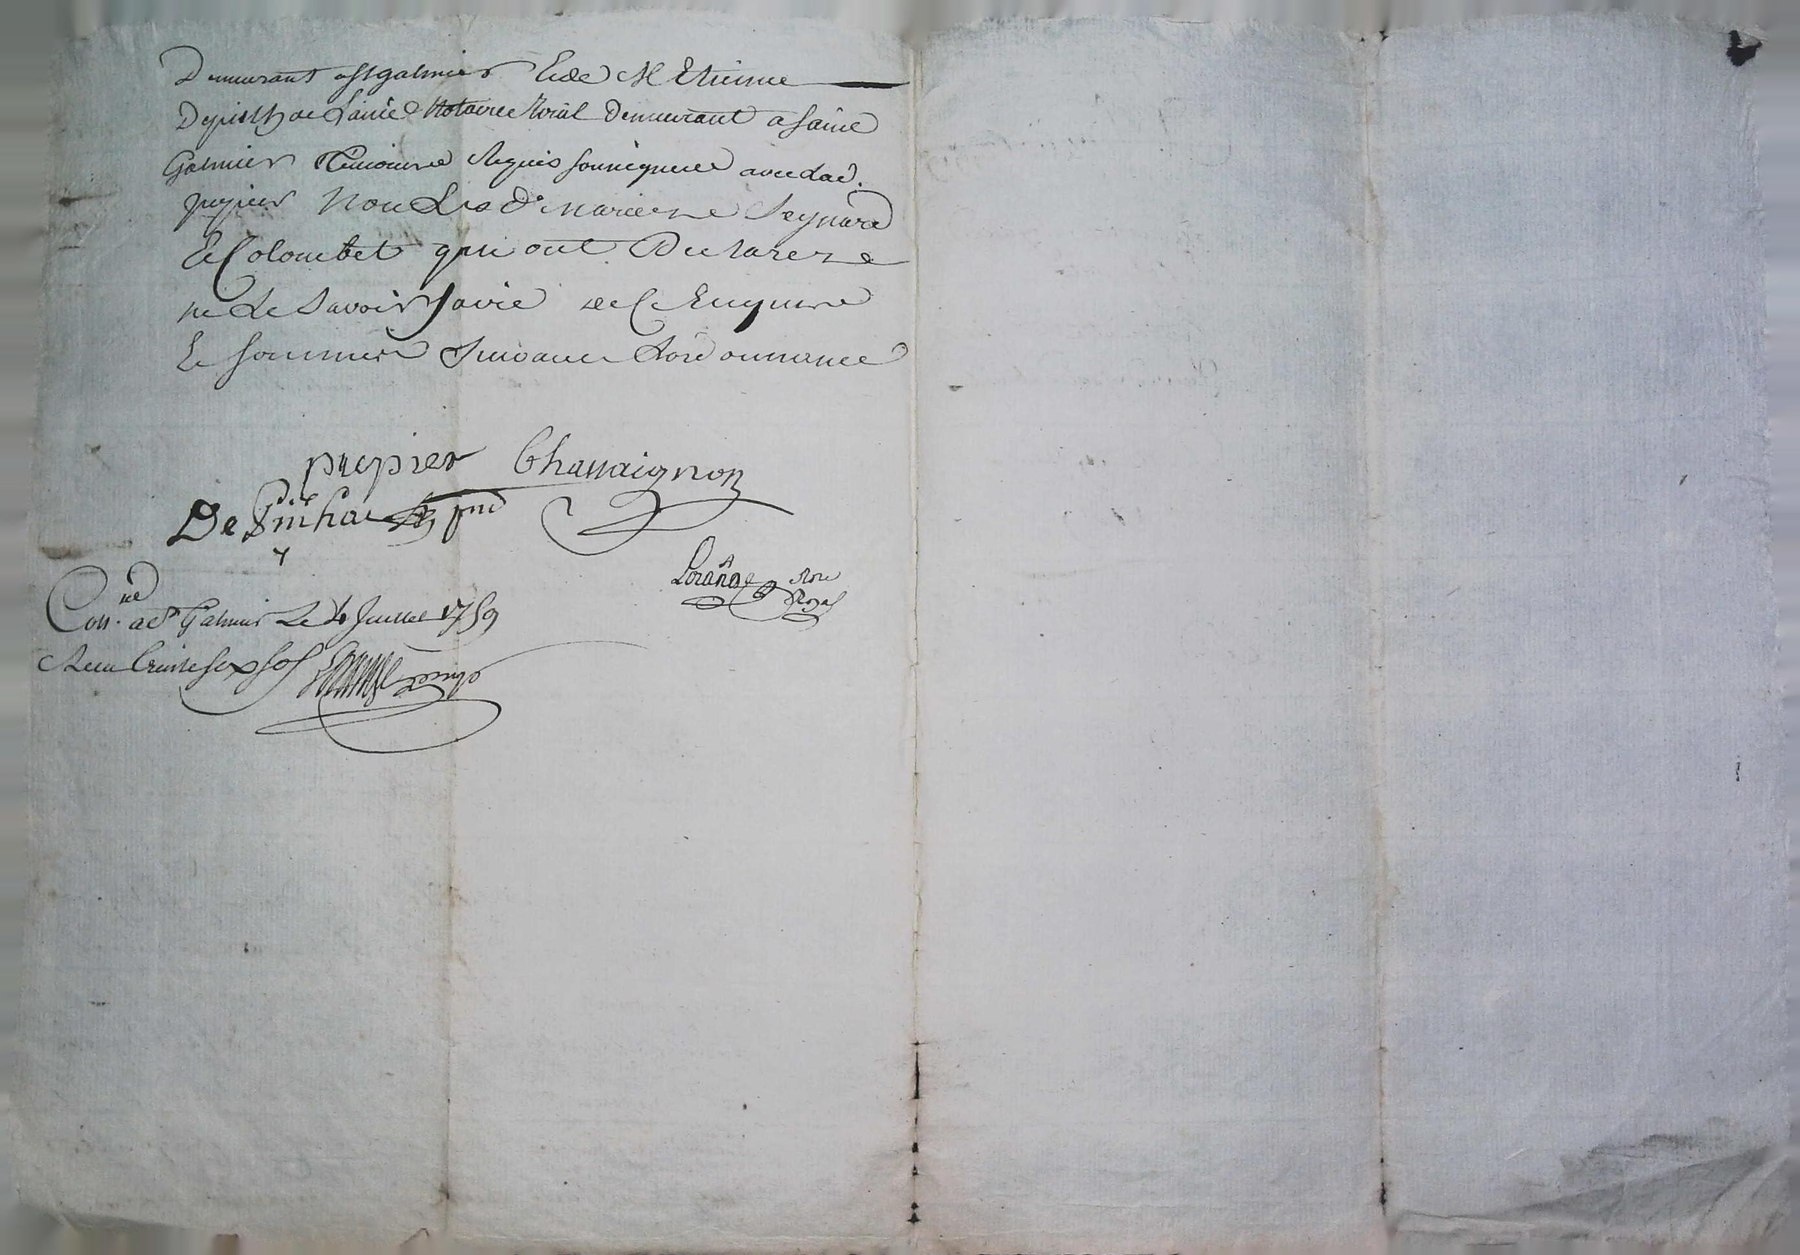 Demeurant a st galmier Et de M Etienne
Depinhac L'ainé Notaire Roial Demeurant a saint
Galmier Témoins Requis soussignés avec lad.
pupier Non Les d. mariee
Et Colombet qui ont Declarer ne
ne Le savoir faire de ce Enquire
Et sommés suivant L'ordonnance
pupier Chassaignon
De pinhac
Lorange Nore
Royal
Con. a st Galmier Le 4 Juillet 1759
Recu trente six sols Lorange